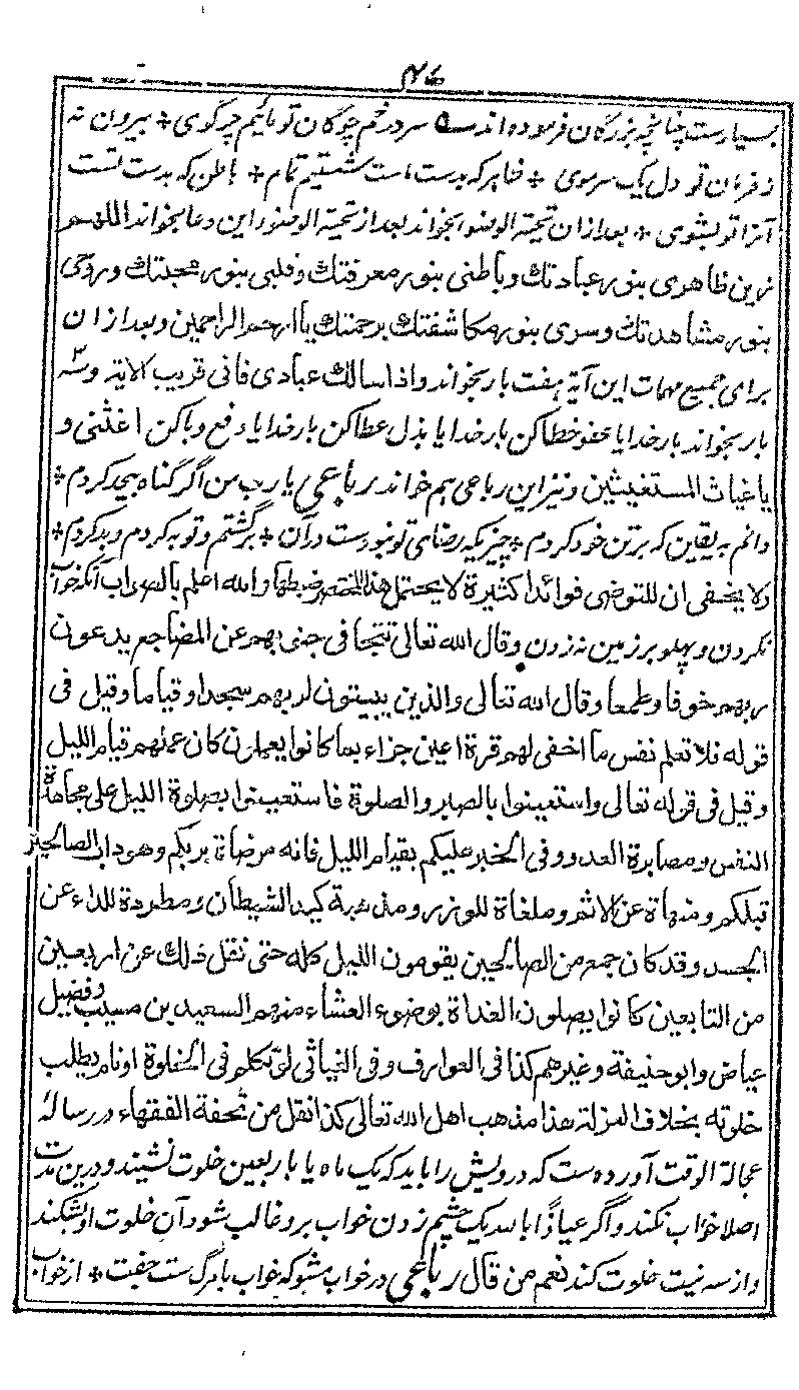 ۴۷
بسیارست چنانچه بزرگان فرموده اند ه سر در خم چوگان تو بائیم چو گوی * بیرون نه
ز فرمان تو دل یک سر موی * ظاهر که بدست ماست شستیم تمام * باطن که بدست تست
آنرا تو بشوی * بعد ازان تحیة الوضو بخواند بعد از تحیة الوضو این دعا بخواند اللهم
زین ظاهری بنور عبادتك وباطنی بنور معرفتك وقلبی بنور محبتك وروحی
بنور مشاهدتك وسری بنور مکاشفتك برحمتك یا ارحم الراحمین و بعد ازان
برای جمیع مهمات این آیة هفت بار بخواند واذا سالك عبادی فانی قریب الایة وسه
بار بخواند بار خدایا عفو خطا کن بار خدایا بذل عطا کن بار خدایا دفع وبا کن اغثنی و
یا غیاث المستغیثین و نیز این رباعی هم خواند رباعی یا رب من اگر گناه بیحد کردم *
دانم به یقین که بر تن خود کردم * چیزیکه رضای تو نبودست در آن * برگشتم و توبه کردم و بد کردم *
ولا یخفی ان للتوضی فوائدا کثیرة لا یحتمل هذا المختصر ضبطها والله اعلم بالصواب آنکه خواب
نکردن و پهلو بر زمین نه زدن وقال الله تعالی تتجافی جنوبهم عن المضاجع یدعون
ربهم خوفا وطمعا وقال الله تعالی والذین یبیتون لربهم سجدا وقیاما وقیل فی
قوله فلا تعلم نفس ما اخفی لهم قرة اعین جزاء بما کانوا یعملون کان عملهم قیام اللیل
وقیل فی قوله تعالی واستعینوا بالصبر والصلوة فاستعینوا بصلوة اللیل علی مجاهدة
النفس ومصابرة العدو وفی الخبر علیکم بقیام اللیل فانه مرضاة بربکم وهو داب الصالحین
قبلکم ومنهاة عن الاثم وملغاة للوزر ومذهبة کید الشیطان ومطردة للداء عن
الجسد وقد کان جمع من الصالحین یقومون اللیل کله حتی نقل ذلك عن اربعین
من التابعین کانوا یصلون الغداة بوضوء العشاء منهم السعید بن مسیب وفضیل
عیاض وابوحنیفة وغیرهم کذا فی العوارف وفی لو تکلم فی الخلوة او نام یطلب
خلوته بخلاف العزلة هذا مذهب اهل الله تعالی کذا نقل من تحفة الفقهاء در رسالۀ
عجالة الوقت آورده ست که درویش را باید که یک ماه یا باربعین خلوت نشیند و درین مدت
اصلا خواب نکند و اگر عیاذا بالله یک چشم زدن خواب برو غالب شود آن خلوت او بشکند
و از سه نیت خلوت کند نعم من قال رباعی در خواب مشو که خواب با مرگ ست جفت * از خواب